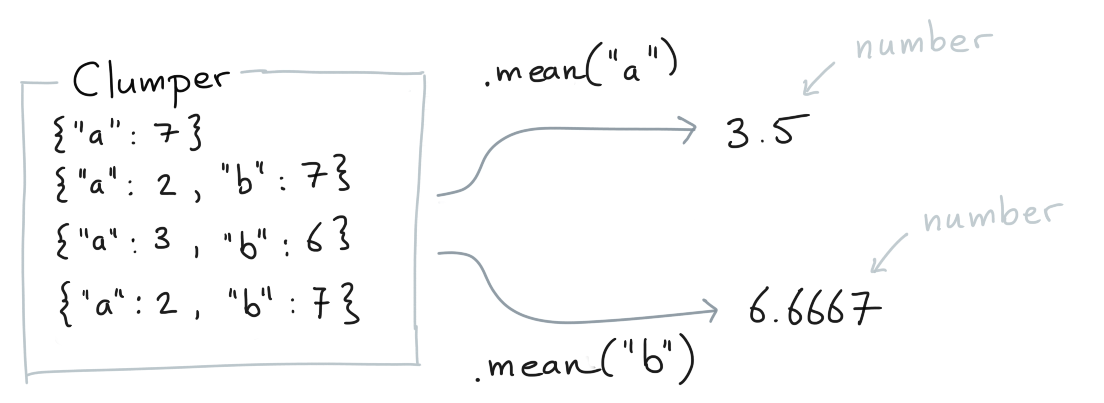 Clumper
{"a": 7}
{"a": 2, "b": 7}
{"a": 3, "b": 6}
{"a": 2, "b": 7}
.mean("a")
number
3.5
number
6.6667
.mean("b")